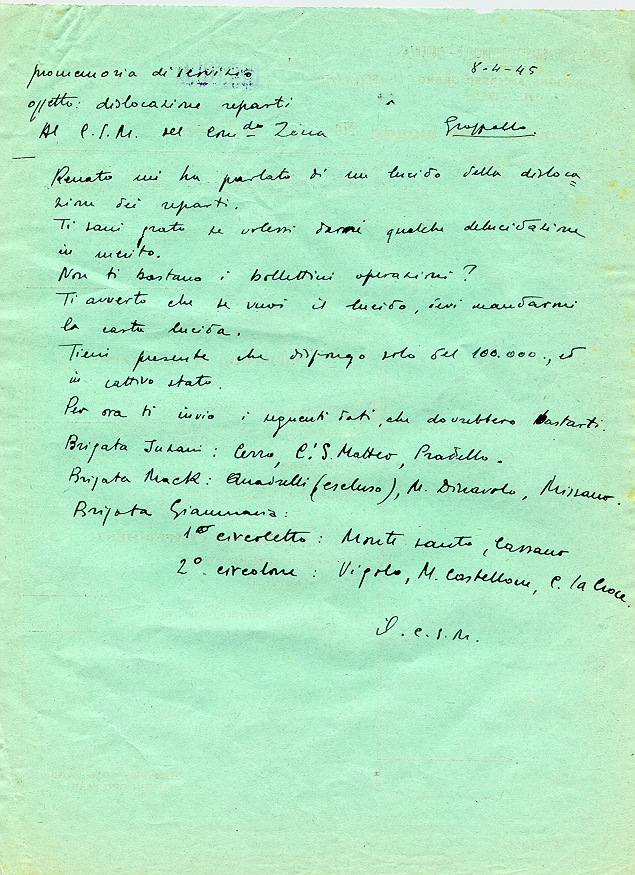 8-4-45
promemoria di servizio
oggetto: dislocazione reparti
Al C.S.M. del Com.do Zona Groppallo.
Renato mi ha parlato di un lucido della disloca
zione dei reparti.
Ti sarei grato se volessi darmi qualche delucidazione
in merito.
Non ti bastano i bollettini operazioni?
Ti avverto che se vuoi il lucido, devi mandarmi
la carta lucida.
Tieni presente che dispongo solo del 100.000., ed
in cattivo stato.
Per ora ti invio i seguenti dati, che dovrebbero bastarti.
Brigata Inzani: Cerro, C. S. Matteo, Pradello.
Brigata Mack: Guadrelli (escluso), M. Dinavolo, Missano.
Brigata Gianmaria:
1° circoletto: Monte santo, Cassano
2° circolone: Vigolo, M. Castellone, C. la Croce.
il C.S.M.